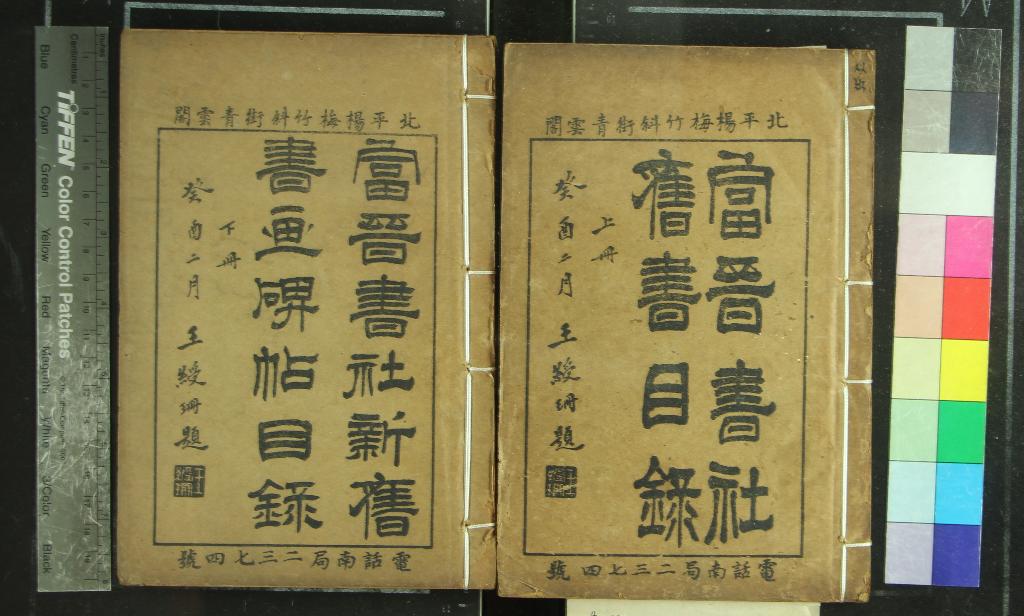 北平楊梅竹斜街青雲閣
富晉書社
舊書目錄
上冊
癸酉二月 王綬珊題
電話南局二三七四號
北平楊梅竹斜街青雲閣
富晉書社新舊
書画碑帖目錄
下冊
癸酉二月 王綬珊題
電話南局二三七四號
inches
Centimetres
TIFFEN Color Control Patches
Blue
Cyan
Green
Yellow
Red
Magenta
White
3/Color
Black